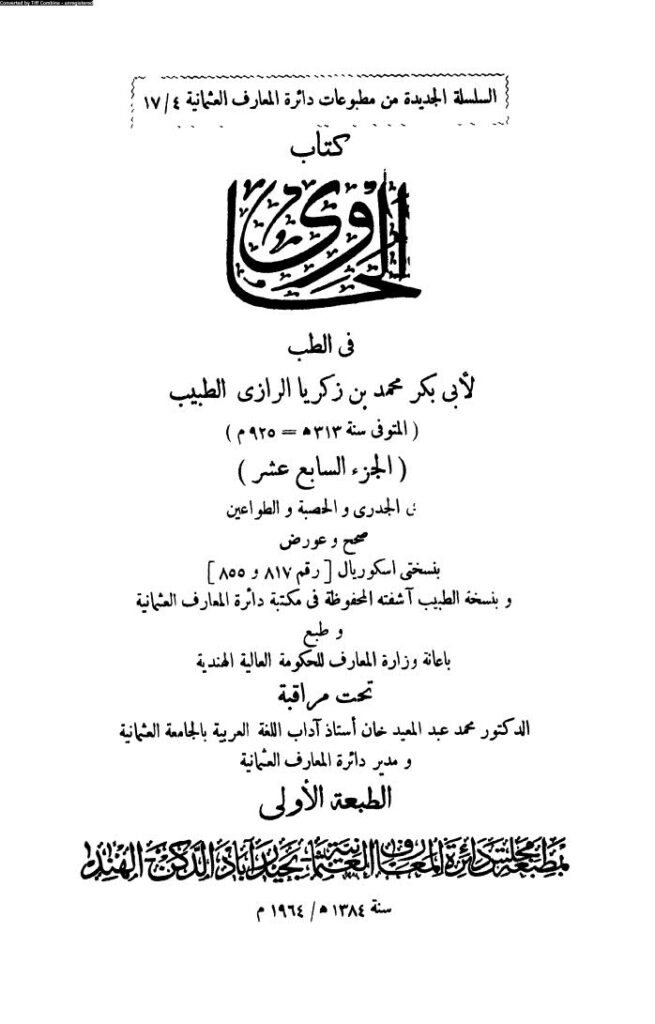 Converted by Tiff Combine - unregistered
السلسلة الجديدة من مطبوعات دائرة المعارف العثمانية ١٧/٤
كتاب
الحاوى
فى الطب
لأبى بكر محمد بن زكريا الرازى الطبيب
( المتوفى سنة ٣١٣ ه = ٩٢٥ م )
( الجزء السابع عشر )
فى الجدرى و الحصبة و الطواعين
صحح و عورض
بنسختى اسكوريال [ رقم ٨١٧ و ٨٥٥ ]
و بنسخة الطبيب آشفته المحفوظة فى مكتبة دائرة المعارف العثمانية
و طبع
باعانة وزارة المعارف للحكومة العالية الهندية
تحت مراقبة
الدكتور محمد عبد المعيد خان أستاذ آداب اللغة العربية بالجامعة العثمانية
و مدير دائرة المعارف العثمانية
الطبعة الأولى
بمطبعة مجلس دائرة المعارف العثمانية بحيدرآباد الدكن الهند
سنة ١٣٨٤ ه / ١٩٦٤ م